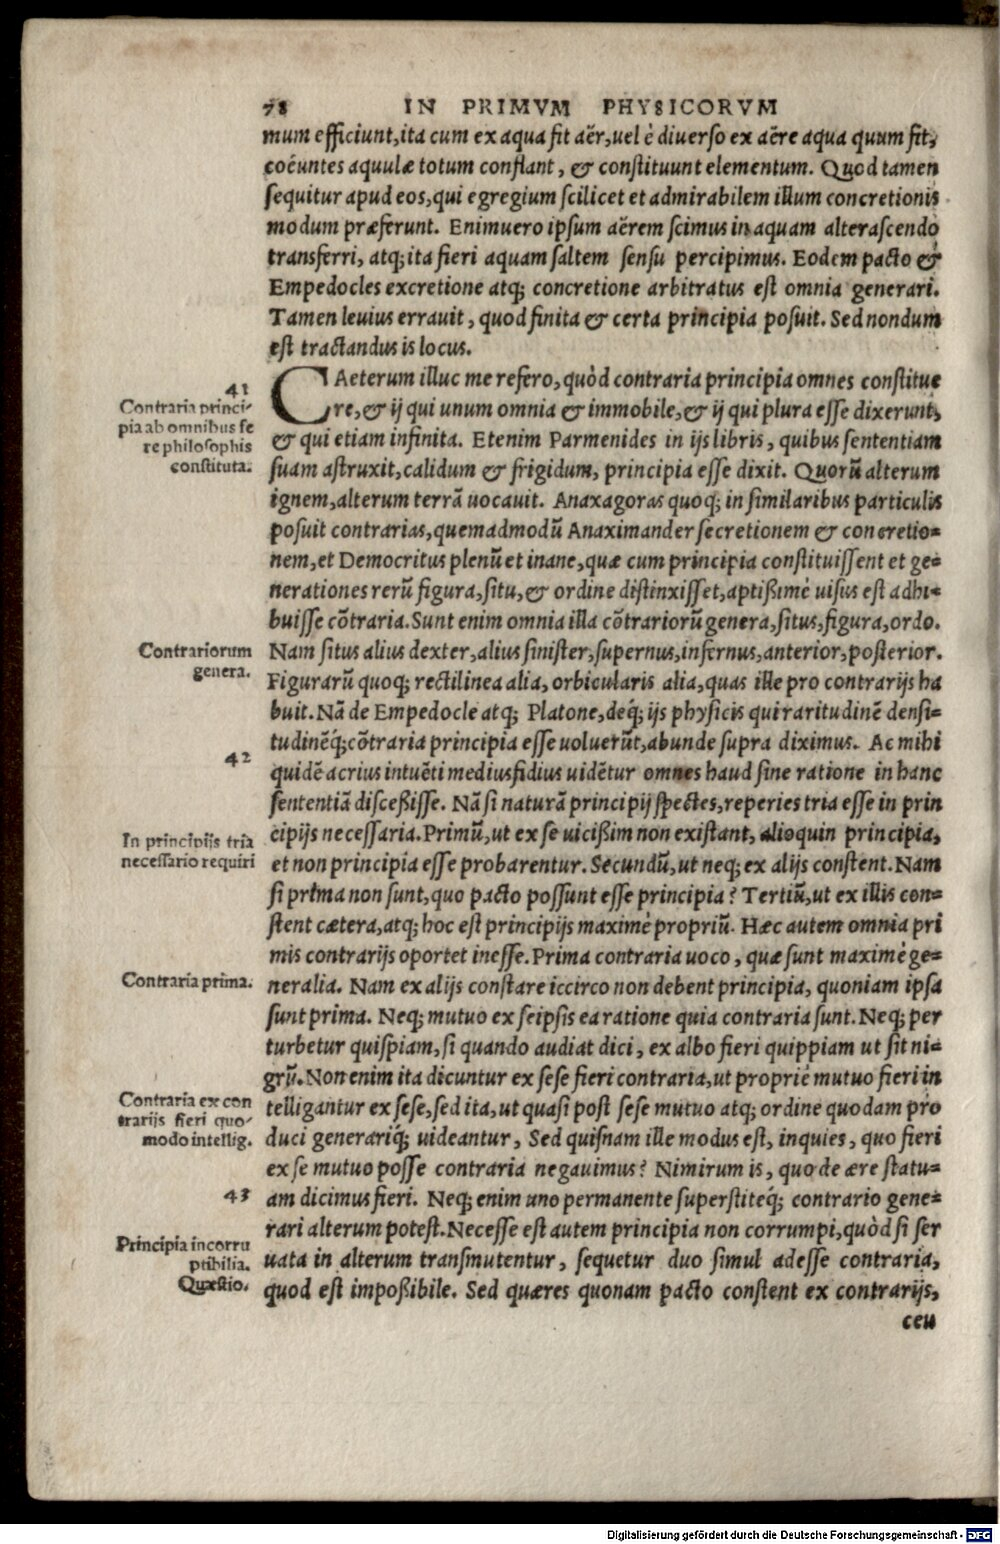 78 IN PRIMVM PHYSICORVM
mum efficiunt, ita cum ex aqua fit aër, uel è diuerso ex aëre aqua quum fit,
coëuntes aquulæ totum conflant, & constituunt elementum. Quod tamen
sequitur apud eos, qui egregium scilicet et admirabilem illum concretionis
modum præferunt. Enimuero ipsum aërem scimus in aquam alterascendo
transferri, atq; ita fieri aquam saltem sensu percipimus. Eodem pacto &
Empedocles excretione atq; concretione arbitratus est omnia generari.
Tamen leuius errauit, quod finita & certa principia posuit. Sed nondum
est tractandus is locus.
41
Contraria princi-
pia ab omnibus fe
re philosophis
constituta.
CAeterum illuc me refero, quòd contraria principia omnes constitue
re, & ij qui unum omnia & immobile, & ij qui plura esse dixerunt,
& qui etiam infinita. Etenim Parmenides in ijs libris, quibus sententiam
suam astruxit, calidum & frigidum, principia esse dixit. Quorū alterum
ignem, alterum terrā uocauit. Anaxagoras quoq; in similaribus particulis
posuit contrarias, quemadmodū Anaximander secretionem & concretio=
nem, et Democritus plenū et inane, quæ cum principia constituissent et ge=
nerationes rerū figura, situ, & ordine distinxisset, aptißimè uisus est adhi=
buisse cōtraria. Sunt enim omnia illa cōtrariorū genera, situs, figura, ordo.
Contrariorum
genera.
Nam situs alius dexter, alius sinister, supernus, infernus, anterior, posterior.
Figurarū quoq; rectilinea alia, orbicularis alia, quas ille pro contrarijs ha
buit. Nā de Empedocle atq; Platone, deq́; ijs physicis qui raritudinē densi=
tudinēq́; cōtraria principia esse uoluerūt, abunde supra diximus. Ac mihi
42
quidē acrius intuēti mediusfidius uidētur omnes haud sine ratione in hanc
sententiā disceßisse. Nā si naturā principij spectes, reperies tria esse in prin
In principijs tria
necessario requiri
cipijs necessaria. Primū, ut ex se uicißim non existant, alioquin principia,
et non principia esse probarentur. Secundū, ut neq; ex alijs constent. Nam
si prima non sunt, quo pacto possunt esse principia? Tertiū, ut ex illis con=
stent cætera, atq; hoc est principijs maximè propriū. Hæc autem omnia pri
mis contrarijs oportet inesse. Prima contraria uoco, quæ sunt maximè ge=
Contraria prima.
neralia. Nam ex alijs constare iccirco non debent principia, quoniam ipsa
sunt prima. Neq; mutuo ex seipsis ea ratione quia contraria sunt. Neq; per
turbetur quispiam, si quando audiat dici, ex albo fieri quippiam ut sit ni=
grū. Non enim ita dicuntur ex sese fieri contraria, ut propriè mutuo fieri in
Contraria ex con
trarijs fieri quo-
modo intellig.
telligantur ex sese, sed ita, ut quasi post sese mutuo atq; ordine quodam pro
duci generariq́; uideantur, Sed quisnam ille modus est, inquies, quo fieri
ex se mutuo posse contraria negauimus? Nimirum is, quo de ære statu=
43
am dicimus fieri. Neq; enim uno permanente superstiteq́; contrario gene=
rari alterum potest. Necesse est autem principia non corrumpi, quòd si ser
Principia incorru
ptibilia.
Quæstio.
uata in alterum transmutentur, sequetur duo simul adesse contraria,
quod est impoßibile. Sed quæres quonam pacto constent ex contrarijs,
ceu
Digitalisierung gefördert durch die Deutsche Forschungsgemeinschaft - DFG